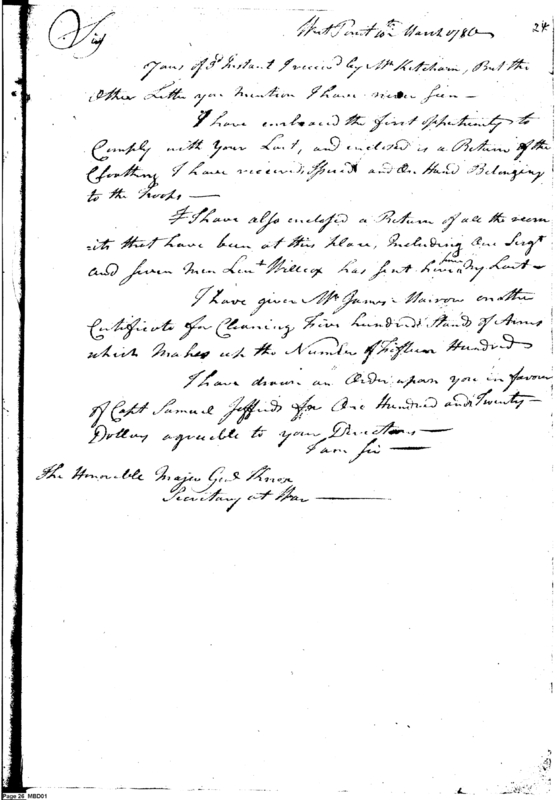 24
West Point 10th March 1786
Sir
Yours of 3d Instant I receivd by Mr Ketcham, But the
Other Letter you Mention I have never seen —
I have embraced the first oppertunity to
Comply with Your Last, and enclosed is a Return of the
Cloathing I have received Issued and On Hand Belonging
to the Troops —
I have also enclosed a Return of all the recru
=its that have been at this place, Including One Sergt
and seven men Leut Willcox has sent since My Last —
I have given Mr James Narrow another
Certificate for Cleaning Five hundred Stands of Arms
which Makes up the Number of Fifteen Hundred
I have drawn an Order upon you in favour
of Capt Samuel for One Hundred and Twenty —
Dollars agreeble to your Directions —
I am Sir —
The Honorable Major Genl Knox
Secretary at War —
Page 26 MBD01